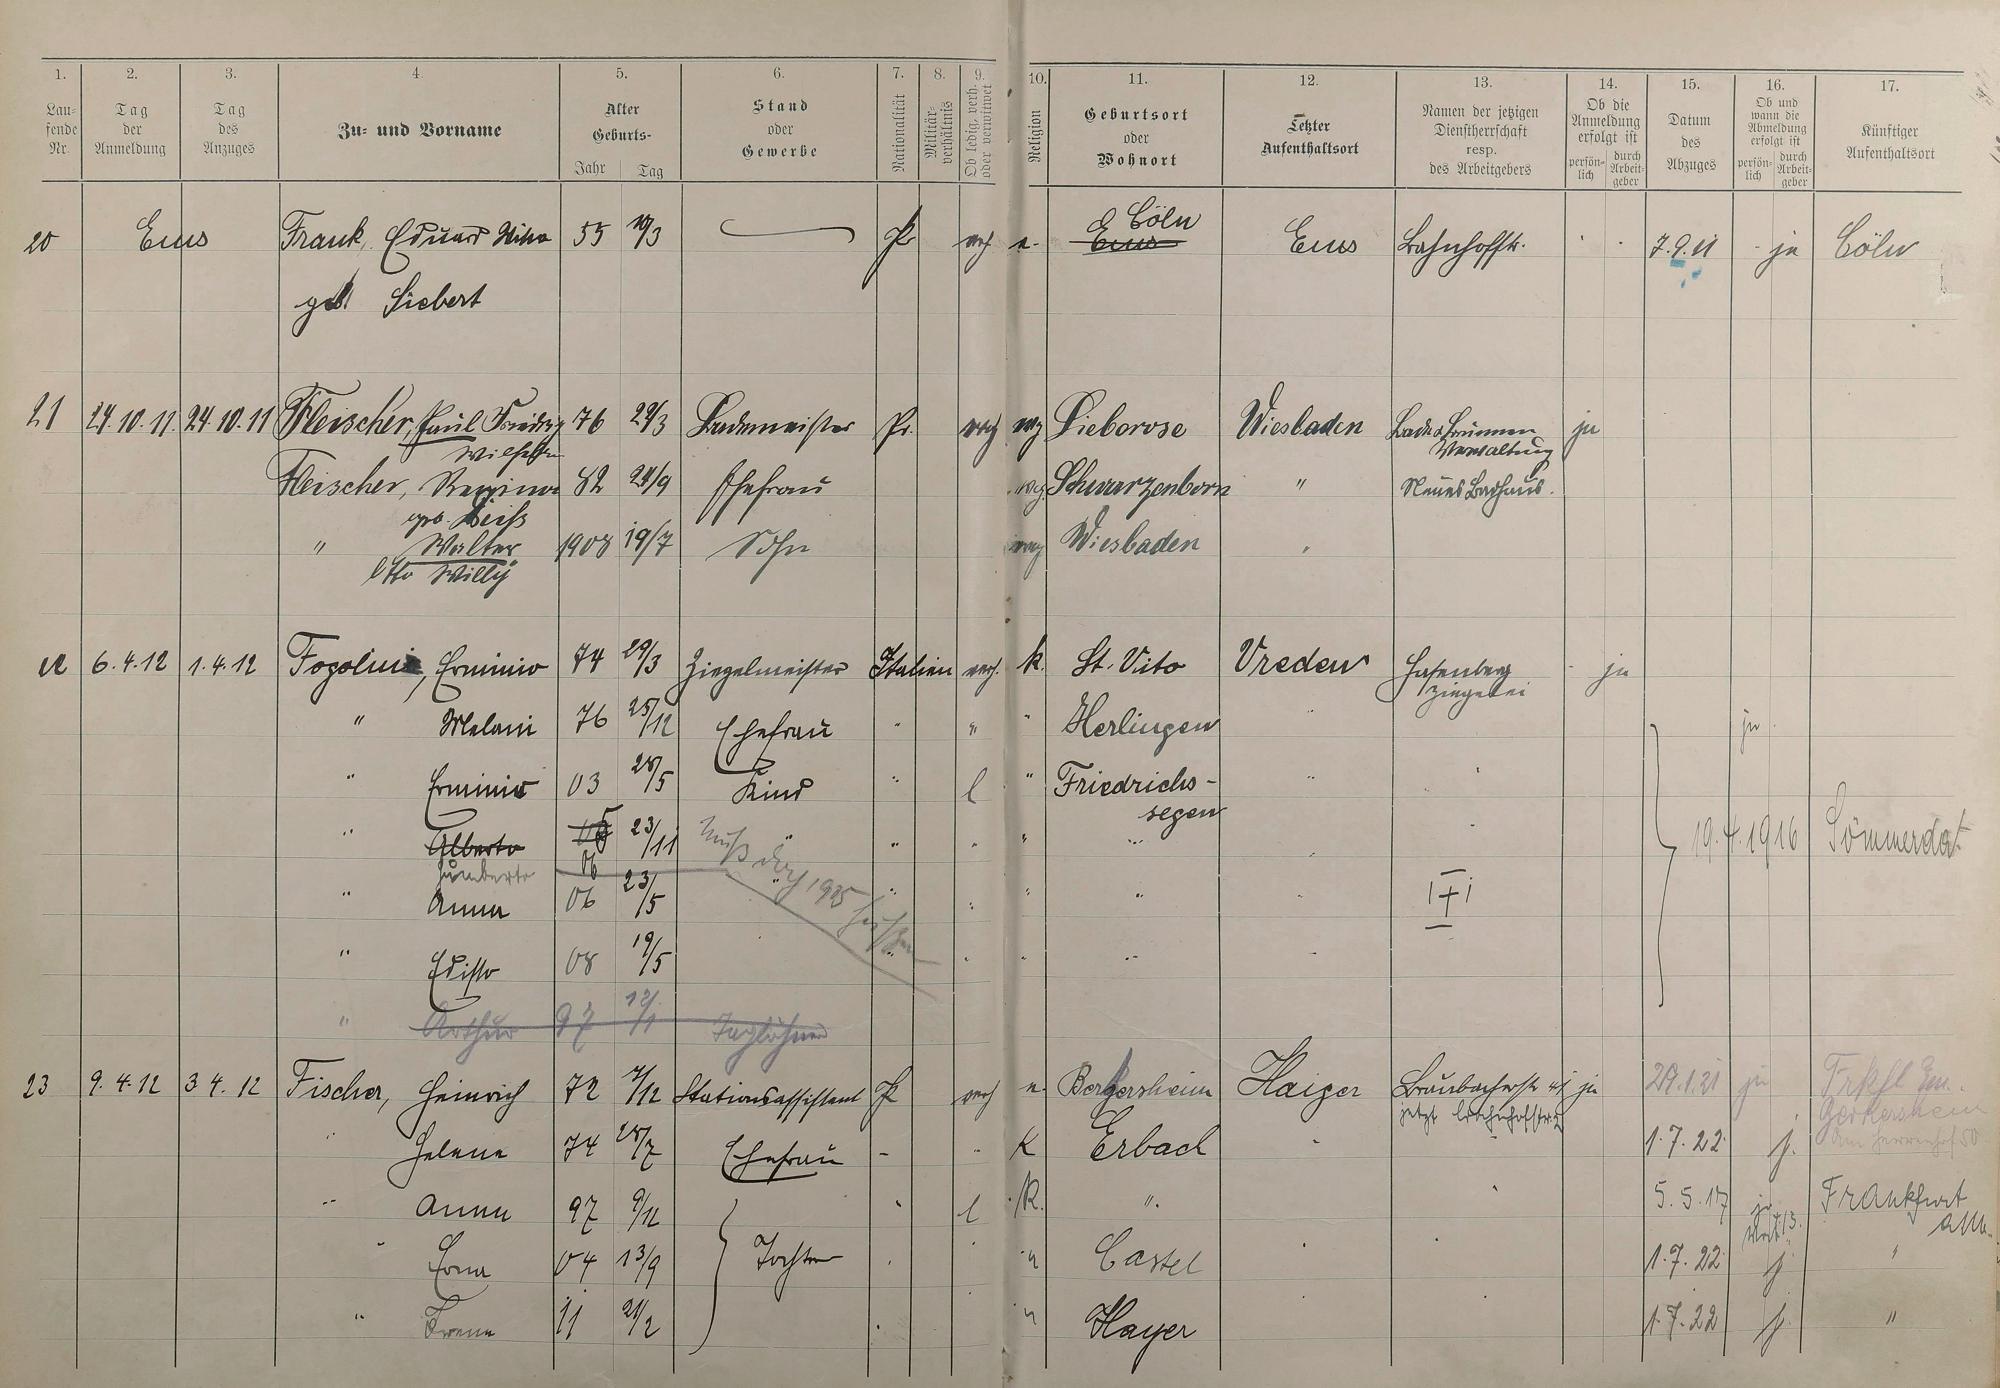 1. 2. 3. 4. 5. 6. 7. 8. 9. 10. 11. 12. 13. 14. 15. 16. 17.
Lau-
fende
Nr.
Tag
der
Anmeldung
Tag
des
Anzuges
Zu- und Vorname
Alter
Geburts-
Jahr Tag
Stand
oder
Gewerbe
Nationalität
Militär-
verhältnis
Ob ledig, verh.
oder verwitwet
Religion
Geburtsort
oder
Wohnort
Letzter
Aufenthaltsort
Namen der jetzigen
Dienstherrschaft
resp.
des Arbeitgebers
Ob die
Anmeldung
erfolgt ist
persön-
lich
durch
Arbeit-
geber
Datum
des
Abzuges
Ob und
wann die
Abmeldung
erfolgt ist
persön-
lich
durch
Arbeit-
geber
Künftiger
Aufenthaltsort
20 Ems Frank, Eduard 55 10/3 Pr verh e. Cöln Ems Bahnhofstr. 7.9.11 ja Cöln
Ems
geb Siebert
21 24.10.11. 24.10.11 Fleischer, Paul Friedrig 76 29/3 Bademeister Pr. verh evg Lieborose Wiesbaden Bade & Brunnen ja
Wilhelm Verwaltung
Fleischer, Regina 82 24/9 Ehefrau evg. Schwarzenborn " Neues Badhaus.
geb.
" Walter 1908 19/7 Sohn evg Wiesbaden "
Otto Willy
22 6.4.12 1.4.12 Fogolini, Erminio 74 29/3 Ziegelmeister Italien verh. k. St. Vito Vreden Hasenberg ja
Ziegelei
" Melani 76 25/12 Ehefrau " " " Herlingen " ja
" Erminio 03 28/5 Kind " l " Friedrichs-
segen
" Alberto 05 23/11 " " " " 19.4.1916 Sömmerda
Humberto 06 muß 1905 heißen
" Anna 06 23/5 " " "
" Edisto 08 19/5 " "
" Arthur 97 12/1 Taglöhner
23 9.4.12 3 4. 12 Fischer, Heinrich 72 7/12 Stationsassistent Pr verh e. Berkersheim Haiger Braubacherstr ja 29.1.21 ja
jetzt Bahnhofstr. 2
" Helene 74 28/7 Ehefrau - " K Erbach " 1.7.22 j.
" Anna 97 9/12 " l K. " " 5.5.17 ja Frankfurt
a/M.
" Erna 04 13/9 Tochter " " Castel " " 1.7.22 j. "
" Irene 11 21/2 " " Hayer 1.7.22 j. "